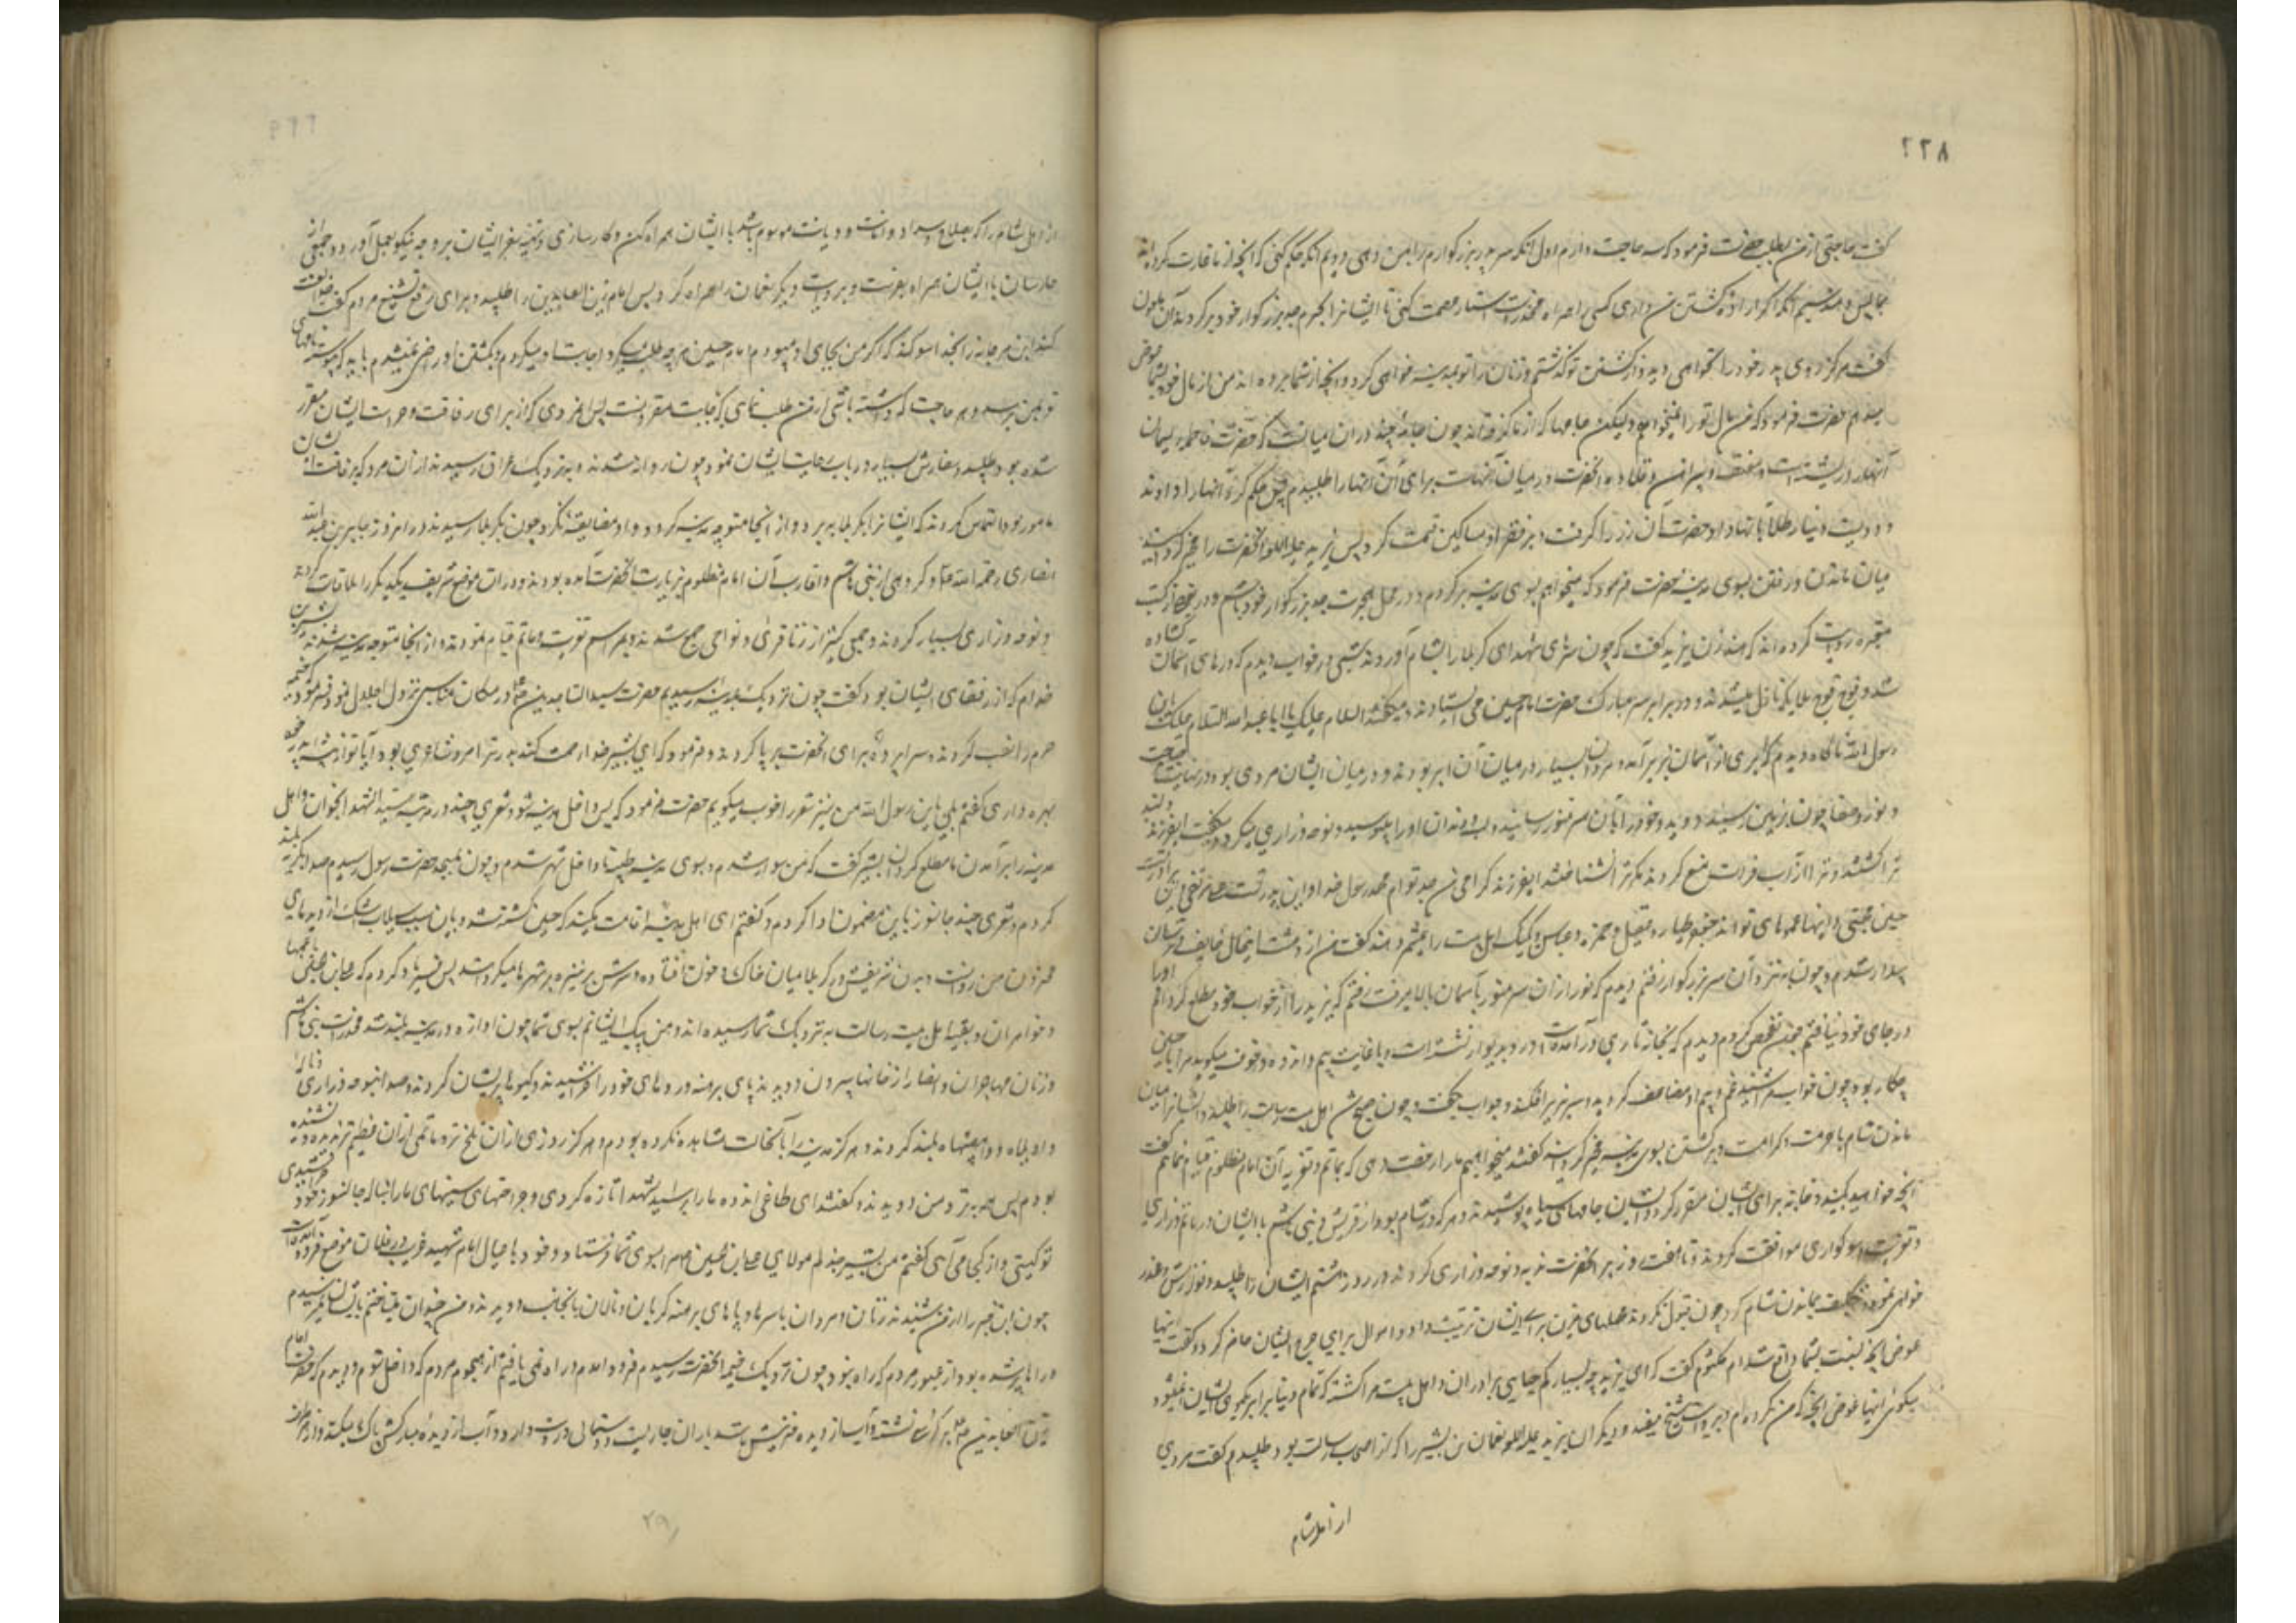 ۲۲۸
گفت حاجتی از من بطلب حضرت فرمود که سه حاجت دارم اول آنکه سر پدر بزرگوارم را بمن دهی دویم آنکه حکم کنی که آنچه از ما غارت کرده اند
بما پس دهند سیم آنکه اگر اراده کشتن من داری کسی همراه مخدرات استار عصمت کنی تا ایشانرا بحرم جد بزرگوار خود برگرداند آن ملعون
گفت هرگز روی پدر خود را نخواهی دید و از کشتن تو گذشتم و زنان را تو بمدینه خواهی کرد و آنچه از شما برده اند من از مال خود بشما عوض
میدهم حضرت فرمود که من مال تو را نمیخواهم ولیکن جامها که از ما گرفته اند چون جامه چند در آن میانست که حضرت فاطمه ریسمان
آنهارا رشته است و مقنعه و پیراهن و قلاده آنحضرت در میان آنهاست برای آن آنهارا طلبیدم پس حکم کرد آنهارا دادند
و دویست دینار طلا بآنها داد و حضرت آن زر را گرفت و بر فقرا و مساکین قسمت کرد پس یزید علیه اللعنه آنحضرت را مخیر گردانید
میان ماندن و رفتن بسوی مدینه حضرت فرمود که میخواهم بسوی مدینه برگردم و در محل هجرت جد بزرگوار خود باشم و در بعضی از کتب
معتبره روایت کرده اند که هند زن یزید گفت که چون سرهای شهدای کربلا را بشام آوردند شبی در خواب دیدم که درهای آسمان گشاده
شد و فوج فوج ملایکه نازل میشدند و در برابر سر مبارک حضرت امام حسین می ایستادند و میگفتند السلام علیک یا ابا عبدالله السلام علیک یابن
رسول الله ناگاه دیدم که ابری از آسمان بزیر آمد و مردان بسیار در میان آن ابر بودند و در میان ایشان مردی بود در نهایت صباحت
و نور و صفا چون بزمین رسید دوید و خود را بآن سر منور رسانید و لب و دندان او را میبوسید و نوحه و زاری میکرد و میگفت ای فرزند دلبند
ترا کشتند و ترا از آب فرات منع کردند مگر ترا نشناختند ای فرزند گرامی من جد توام محمد رسول خدا و این پدر تست علی مرتضی و این برادر تست
حسن مجتبی و اینها عموهای تواند جعفر طیار و عقیل و حمزه و عباس و یک یک اهل بیت را میشمرد هند گفت من از دهشت این حال خایف و ترسان
بیدار شدم و چون بنزد آن سر بزرگوار رفتم دیدم که نور از آن سر منور بآسمان بالا میرفت رفتم که یزید را از خواب خود مطلع گردانم او را
در جای خود نیافتم چون تفحص کردم دیدم که بخانه تاریکی درآمده است و رو بدیوار نشسته است و با غایت بیم و اندوه و خوف میگوید مرا با حسین
چکار بود چون خواب مرا شنید غم و بیم او مضاعف گردید و سر بزیر افکند و جواب نگفت و چون صبح شد اهل بیت رسالت را طلبید و ایشانرا میان
ماندن شام با حرمت و کرامت و برگشتن بسوی مدینه مخیر گردانید گفتند میخواهیم ما را رخصت دهی که بماتم و تعزیه آن امام مظلوم قیام نمائیم گفت
آنچه خواهید بکنید و خانه برای ایشان مقرر کرد و ایشان جامهای سیاه پوشیدند و هر که در شام بود از قریش و بنی هاشم با ایشان در ماتم و زاری
و تعزیت و سوگواری موافقت کردند و تا هفت روز بر آنحضرت ندبه و نوحه و زاری کردند و در روز هشتم ایشان را طلبید و نوازش و عذر
خواهی نمود و تکلیف بماندن شام کرد چون قبول نکردند محملهای مزین برای ایشان ترتیب داد و اموال برای خرج ایشان حاضر کرد و گفت اینها
عوض آنچه نسبت بشما واقع شد ام کلثوم گفت که ای یزید چه بسیار کم حیایی برادران و اهل بیت مرا کشته که تمام دنیا برابر یک موی ایشان نمیشود
میگوئی اینها عوض آنچه من کرده ام و بروایت شیخ مفید و دیگران یزید علیه اللعنه نعمان بن بشیر را که از اصحاب رسالت بود طلبید و گفت مردی
از اهل شام
از اهل شام را که بصلاح و سداد و امانت و دیانت موسوم باشد با ایشان همراه کن و کارسازی و تهیه سفر ایشان بر وجه نیکو بعمل آور و جمعی از
حارسان با ایشان همراه بفرست و بروایت دیگر نعمان را همراه کرد پس امام زین العابدین را طلبید و برای رفع تشنیع مردم گفت خدا لعنت
کند ابن مرجانه را بخدا سوگند که اگر من بجای او میبودم امام حسین هر چه طلب میکرد اجابت او میکردم و بکشتن او راضی نمیشدم باید که پیوسته نامهای
تو بمن برسد و هر حاجت که داشته باشی از من طلب نمایی که باجابت مقرونست پس مردی که از برای رفاقت و حراست ایشان مقرر
شده بود طلبید و سفارش بسیار در باب رعایت ایشان نمود چون روانه شدند و بنزدیک عراق رسیدند از آن مرد که برفاقت ایشان
مامور بود التماس کردند که ایشانرا بکربلا ببرد و از آنجا متوجه مدینه گردد و او مضایقه نکرد چون بکربلا رسیدند در آنروز جابر بن عبدالله
انصاری رحمة الله علیه و گروهی از بنی هاشم و اقارب آن امام مظلوم بزیارت آنحضرت آمده بودند و در آن موضع شریف یکدیگر را ملاقات کردند
و نوحه و زاری بسیار کردند و جمعی کثیر از زنان قری و نواحی جمع شدند و بمراسم تعزیت و ماتم قیام نمودند و از آنجا متوجه مدینه شدند بشیر بن
خذلم که از رفقای ایشان بود گفت چون نزدیک بمدینه رسیدیم حضرت سید الساجدین در مکان مناسبی نزول اجلال نمود و فرمود که خیمه
حرم را نصب کردند و سراپرده برای آنحضرت برپا کردند و فرمود که ای بشیر خدا رحمت کند پدر ترا مرد شاعری بود آیا تو از پیشه پدر خود
بهره داری گفتم بلی یابن رسول الله من نیز شعر را خوب میگویم حضرت فرمود که پس داخل مدینه شو و شعری چند در مرثیه سید الشهدا بخوان و اهل
مدینه را بر آمدن ما مطلع گردان بشیر گفت که من سوار شدم و بسوی مدینه شتافتم و داخل شهر شدم و چون بمسجد حضرت رسول رسیدم صدا بگریه بلند
کردم و شعری چند جانسوز باین مضمون ادا کردم و گفتم ای اهل مدینه اقامت مکنید که حسین کشته شد و باین سبب سیلاب اشک از دیدهای
من روانست و بدن شریفش در کربلا میان خاک و خون افتاده و سرش بر نیزه در شهرها میگردانند پس فریاد کردم که علی بن الحسین با عمها
و خواهران و بقیه اهل بیت رسالت بنزدیک شما رسیده اند و من پیک ایشانم بسوی شما چون این آوازه در مدینه بلند شد مخدرات بنی هاشم
و زنان مهاجران و انصار از خانها بیرون دویدند با پای برهنه و روهای خود را خراشیدند و گیسوها پریشان کردند و صدا بنوحه و زاری و ناله
و واویلاه و وامصیبتاه بلند کردند و هرگز مدینه را بآن حالت مشاهده نکرده بودم و هرگز روزی از آن تلخ تر و ماتمی از آن عظیم تر ندیده و نشنیده
بودم پس همه بنزد من دویدند و گفتند ای ناعی اندوه ما را بر سید شهدا تازه کردی و جراحتهای سینهای ما را بناله جانسوز خود خراشیدی
تو کیستی و از کجا می آئی گفتم من بشیر بن حذلم مولای من علی بن الحسین مرا بسوی شما فرستاد و خود با عیال امام شهید غریب در فلان موضع فرود آمده است
چون این خبر را از من شنیدند زنان و مردان با سرها و پاهای برهنه گریان و نالان بآنجانب دویدند و من چندان که شتافتم بایشان نرسیدم
و راهها پر شده بود از عبور مردم که راه نبود چون نزدیک خیمه آنحضرت رسیدم فرود آمدم و راه نمی یافتم از هجوم مردم که داخل شوم و دیدم که حضرت امام
زین العابدین بر کرسی نشسته و آب از دیده حزینش مانند باران جاریست و دستمالی در دست دارد و آب از دیده مبارکش پاک میکند و از هر طرف